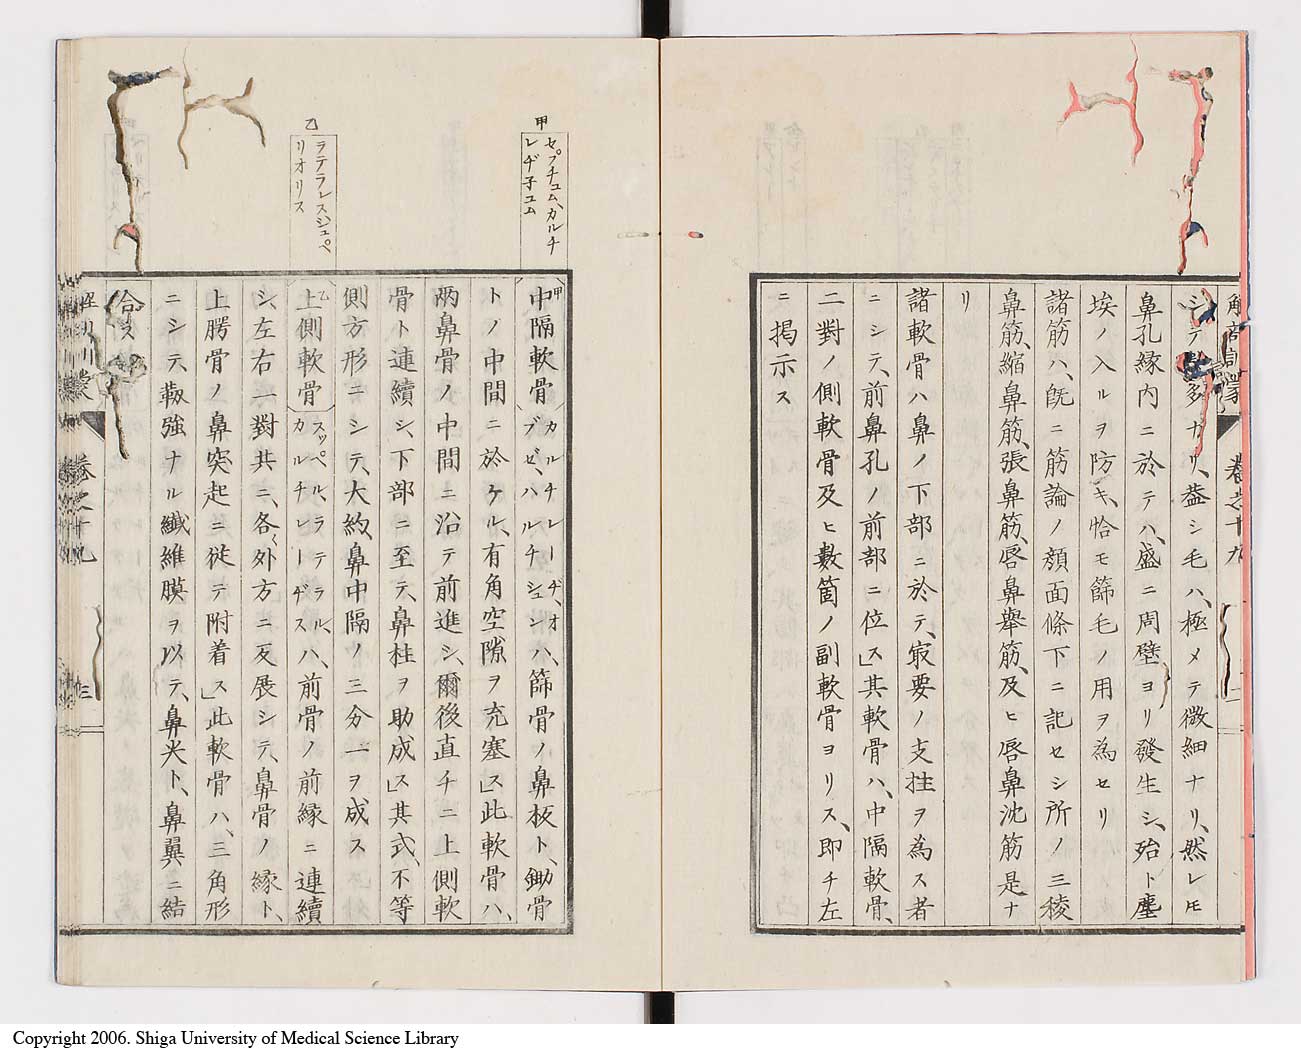 シテ多ナリ、蓋シ毛ハ、極メテ微細ナリ、然レモ
鼻孔縁内ニ於テハ、盛ニ周壁ヨリ發生シ、殆ト塵
埃ノ入ルヲ防キ、恰モ篩毛ノ用ヲ為セリ
諸筋ハ、既ニ筋論ノ顔面條下ニ記セシ所ノ三稜
鼻筋、縮鼻筋、張鼻筋、唇鼻舉筋、及ヒ唇鼻沈筋是ナ
リ
諸軟骨ハ鼻ノ下部ニ於テ、㝡要ノ支拄ヲ為ス者
ニシテ、前鼻孔ノ前部ニ位ス」其軟骨ハ、中隔軟骨、
二對ノ側軟骨及ヒ數箇ノ副軟骨ヨリス、即チ左
ニ掲示ス
甲
セプチュム、カルチ
レヂ子ユム
甲中隔軟骨
カルチレーヂ、オ
ブゼ、ハルチシュンハ、篩骨ノ鼻板ト、鋤骨
トノ中間ニ於ケル、有角空隙ヲ充塞ス」此軟骨ハ、
兩鼻骨ノ中間ニ沿テ前進シ、爾後直チニ上側軟
骨ト連續シ、下部ニ至テ、鼻柱ヲ助成ス」其式、不等
側方形ニシテ、大約、鼻中隔ノ三分一ヲ成ス
乙
ラテラレスジュペ
リオリス
乙上側軟骨
スッペル、ラテラル、
カルチレーヂスハ、前骨ノ前縁ニ連續
シ、左右一對共ニ、各〻外方ニ反展シテ、鼻骨ノ縁ト、
上腭骨ノ鼻突起ニ従テ附着ス」此軟骨ハ、三角形
ニシテ、靱強ナル纖維膜ヲ以テ、鼻尖ト、鼻翼ニ結
合ス
卷之十九
三